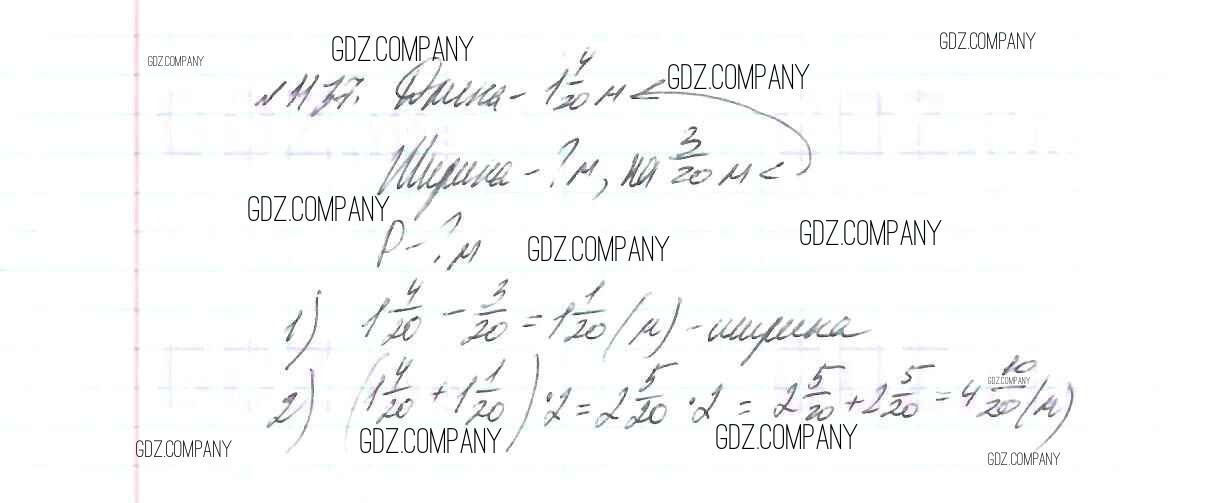 GDZ.COMPANY GDZ.COMPANY GDZ.COMPANY
№1137. Длина - 1 4/20 м < GDZ.COMPANY
Ширина - ? м, на 3/20 м <
GDZ.COMPANY GDZ.COMPANY
P - ? м GDZ.COMPANY
1) 1 4/20 - 3/20 = 1 1/20 (м) - ширина
2) (1 4/20 + 1 1/20) · 2 = 2 5/20 · 2 = 2 5/20 + 2 5/20 = 4 10/20 (м)
GDZ.COMPANY
GDZ.COMPANY GDZ.COMPANY GDZ.COMPANY GDZ.COMPANY